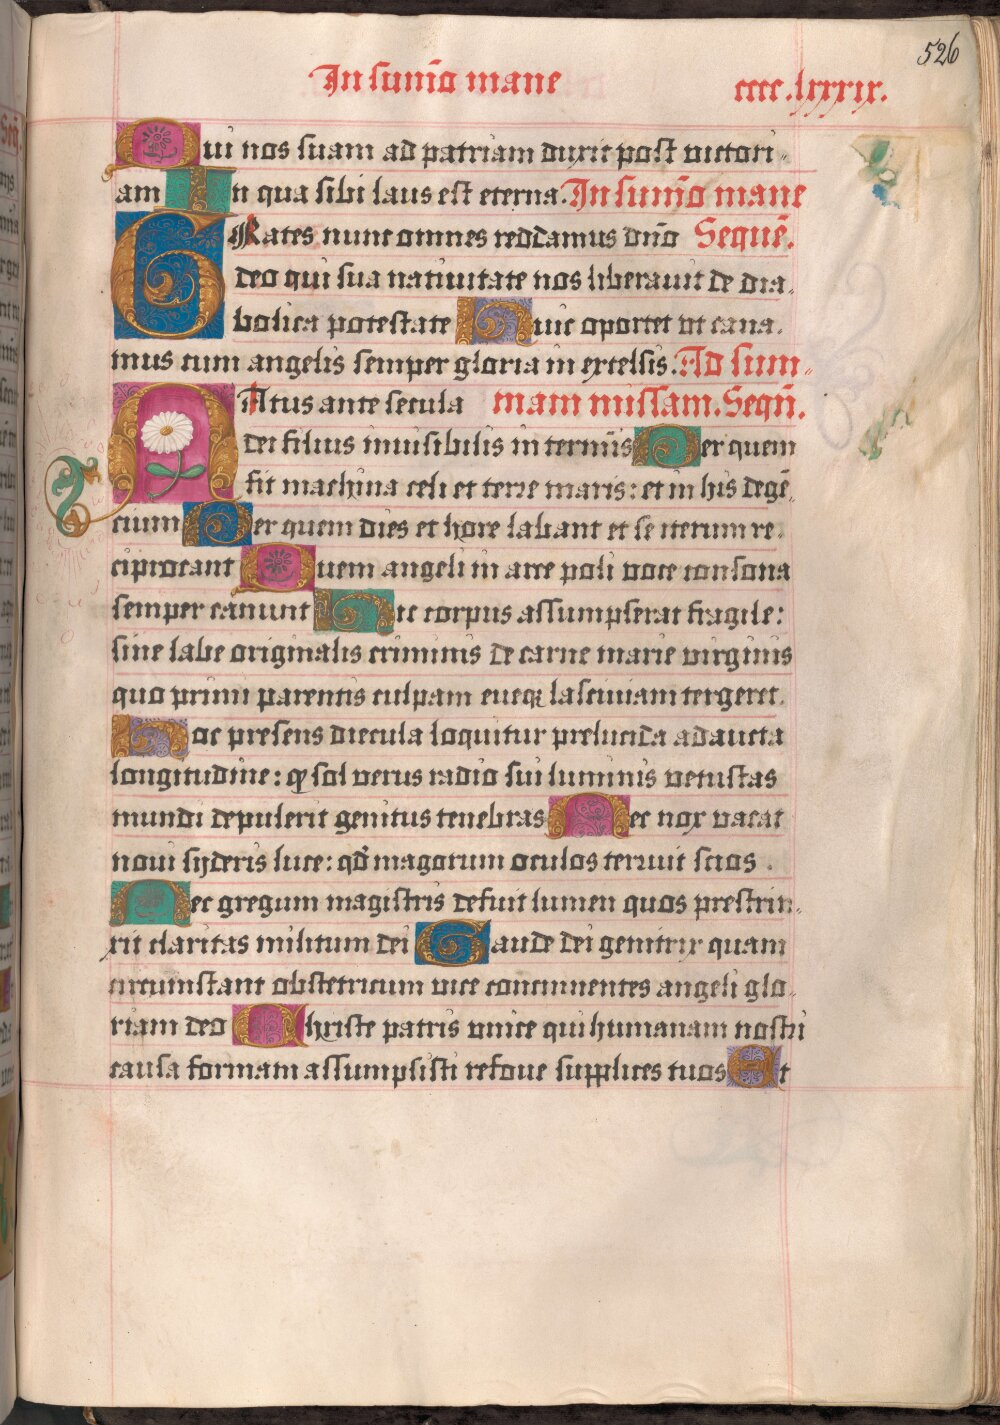 526
In sum̄o mane cccc.lxxxix.
Qui nos suam ad patriam duxit post victori-
am In qua sibi laus est eterna. In sum̄o mane
GRates nunc omnes reddamus dn̄o Sequē.
deo qui sua natiuitate nos liberauit de dia-
bolica potestate Huic oportet vt cana-
mus cum angelis semper gloria in excelsis. Ad sum-
NAtus ante secula mam missam. Seqn̄.
dei filius inuisibilis in termīs Per quem
fit machina celi et terre maris: et in his degē-
cium Per quem dies et hore labant et se iterum re-
ciprocant Quem angeli in arce poli voce consona
semper canunt Hic corpus assumpserat fragile:
sine labe originalis criminis de carne marie virginis
quo primi parentis culpam eueqȝ lasciuiam tergeret.
Hoc presens diecula loquitur prelucida adaucta
longitudine: ꝙ sol verus radio sui luminis vetustas
mundi depulerit genitus tenebras Nec nox vacat
noui syderis luce: qd̄ magorum oculos terruit scios.
Nec gregum magistris defuit lumen quos prestrin-
xit claritas militum dei Gaude dei genitrix quam
circumstant obstetricum vice concinnentes angeli glo-
riam deo Christe patris vnice qui humanam nostri
causa formam assumpsisti refoue supplices tuos Et